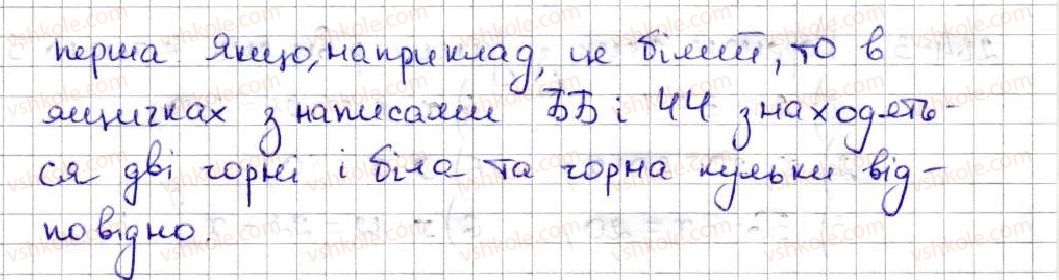 перша Якщо, наприклад, це білий, то в
ящичках з написами ББ і ЧЧ знаходять-
ся дві чорні і біла та чорна кульки від-
повідно.